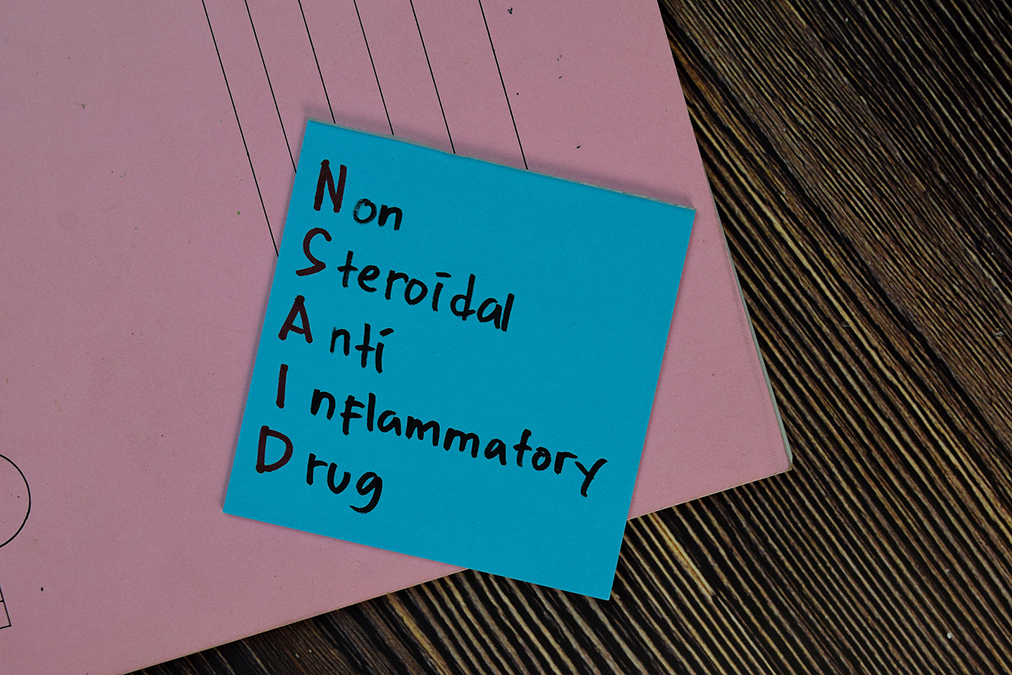 Non
Steroidal
Anti
Inflammatory
Drug